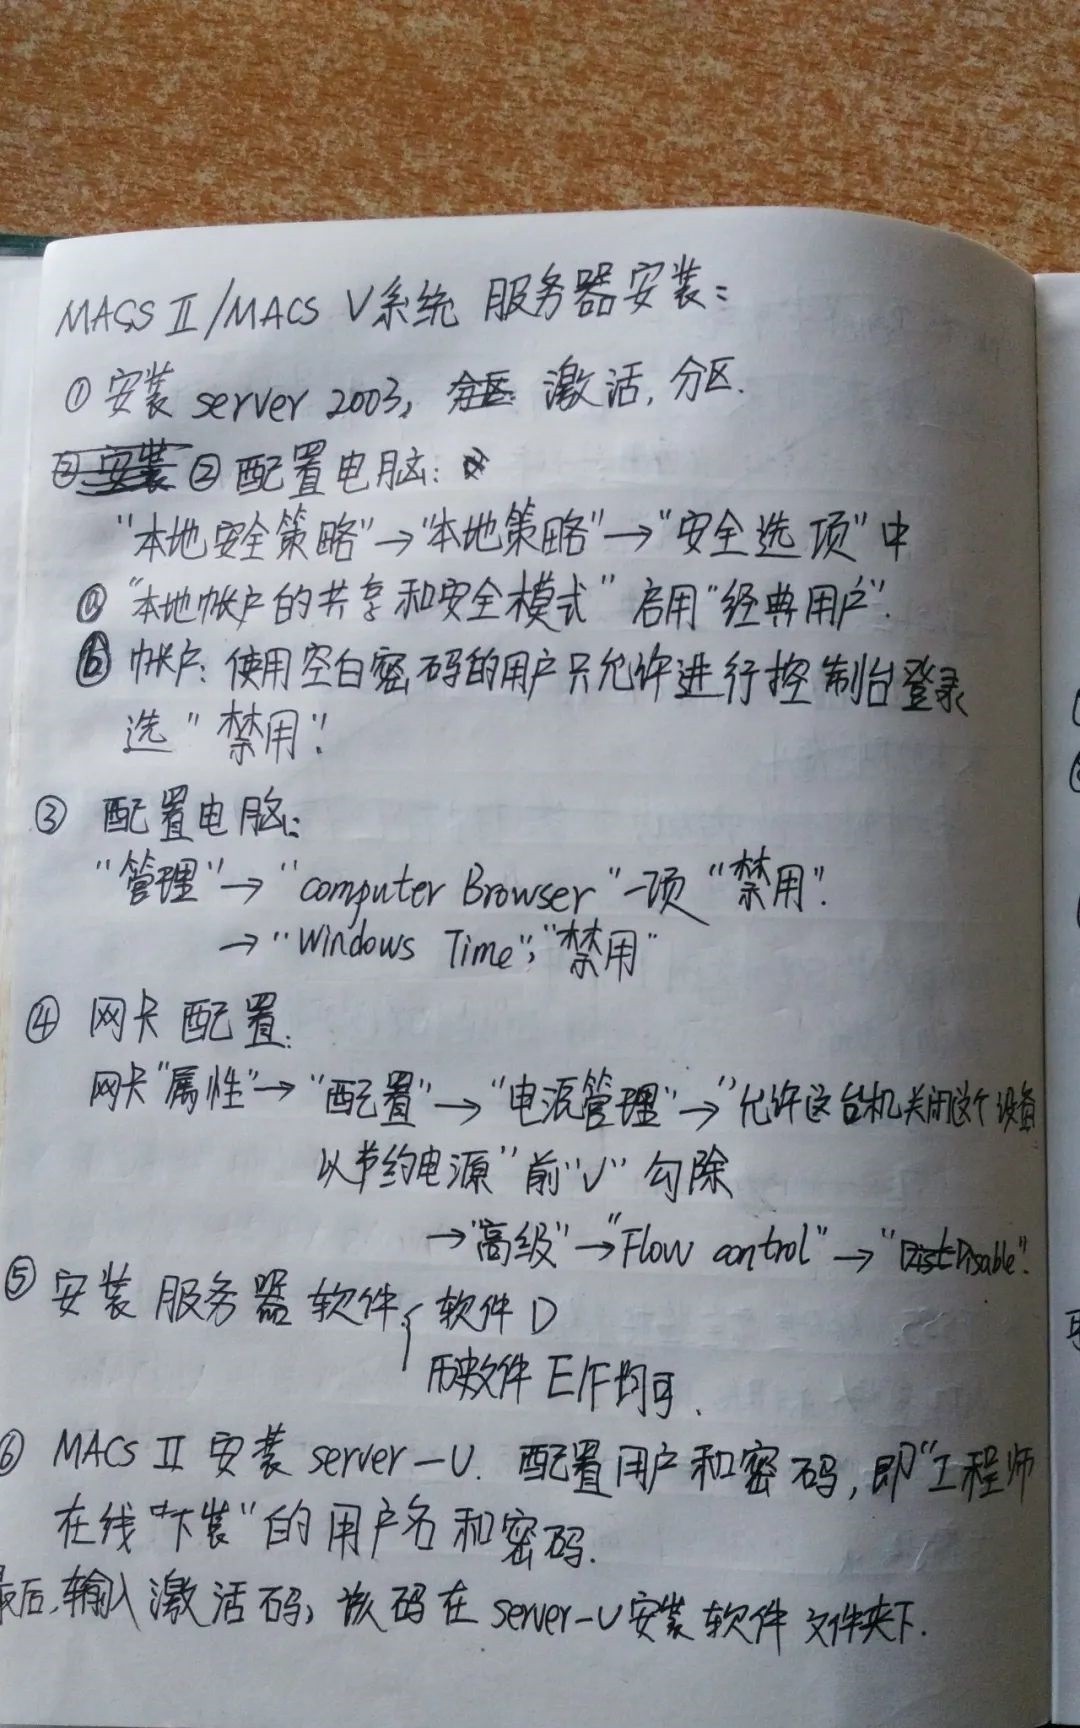 MACS II/MACS V系统 服务器安装:
① 安装 server 2003, 激活, 分区.
② 配置电脑:
"本地安全策略"→"本地策略"→"安全选项"中
ⓐ "本地帐户的共享和安全模式" 启用"经典用户".
ⓑ 帐户: 使用空白密码的用户只允许进行控制台登录
选"禁用".
③ 配置电脑:
"管理"→"computer Browser"一项"禁用".
→"Windows Time","禁用"
④ 网卡配置:
网卡"属性"→"配置"→"电源管理"→"允许这台机关闭这个设备
以节约电源"前"√"勾除
→"高级"→"Flow control"→"Disable".
⑤ 安装服务器软件{ 软件 D
历史文件 E/F均可.
⑥ MACS II 安装 server-U. 配置用户和密码, 即"工程师
在线"下装"的用户名和密码.
最后, 输入激活码, 该码在 server-U安装软件文件夹下.